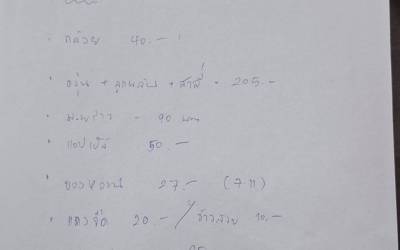 · กล้วย 40.-
· องุ่น + ลูกพลับ + สาลี่ = 205.-
· มะพร้าว - 90 บาท
· แอปเปิ้ล 50.-
· ของหวาน 27.- (7 11)
· แตงจืด 20.- / ข้าวสวย 10.-